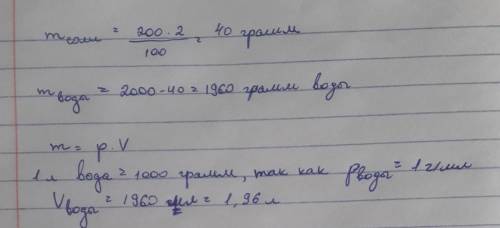 m соли = 200 · 2 / 100 = 40 грамм
m вода = 2000 - 40 = 1960 грамм воды
m = р. V
1 л вода = 1000 грамм, так как р воды = 1 г/мл
V вода = 1960 мл = 1,96 л